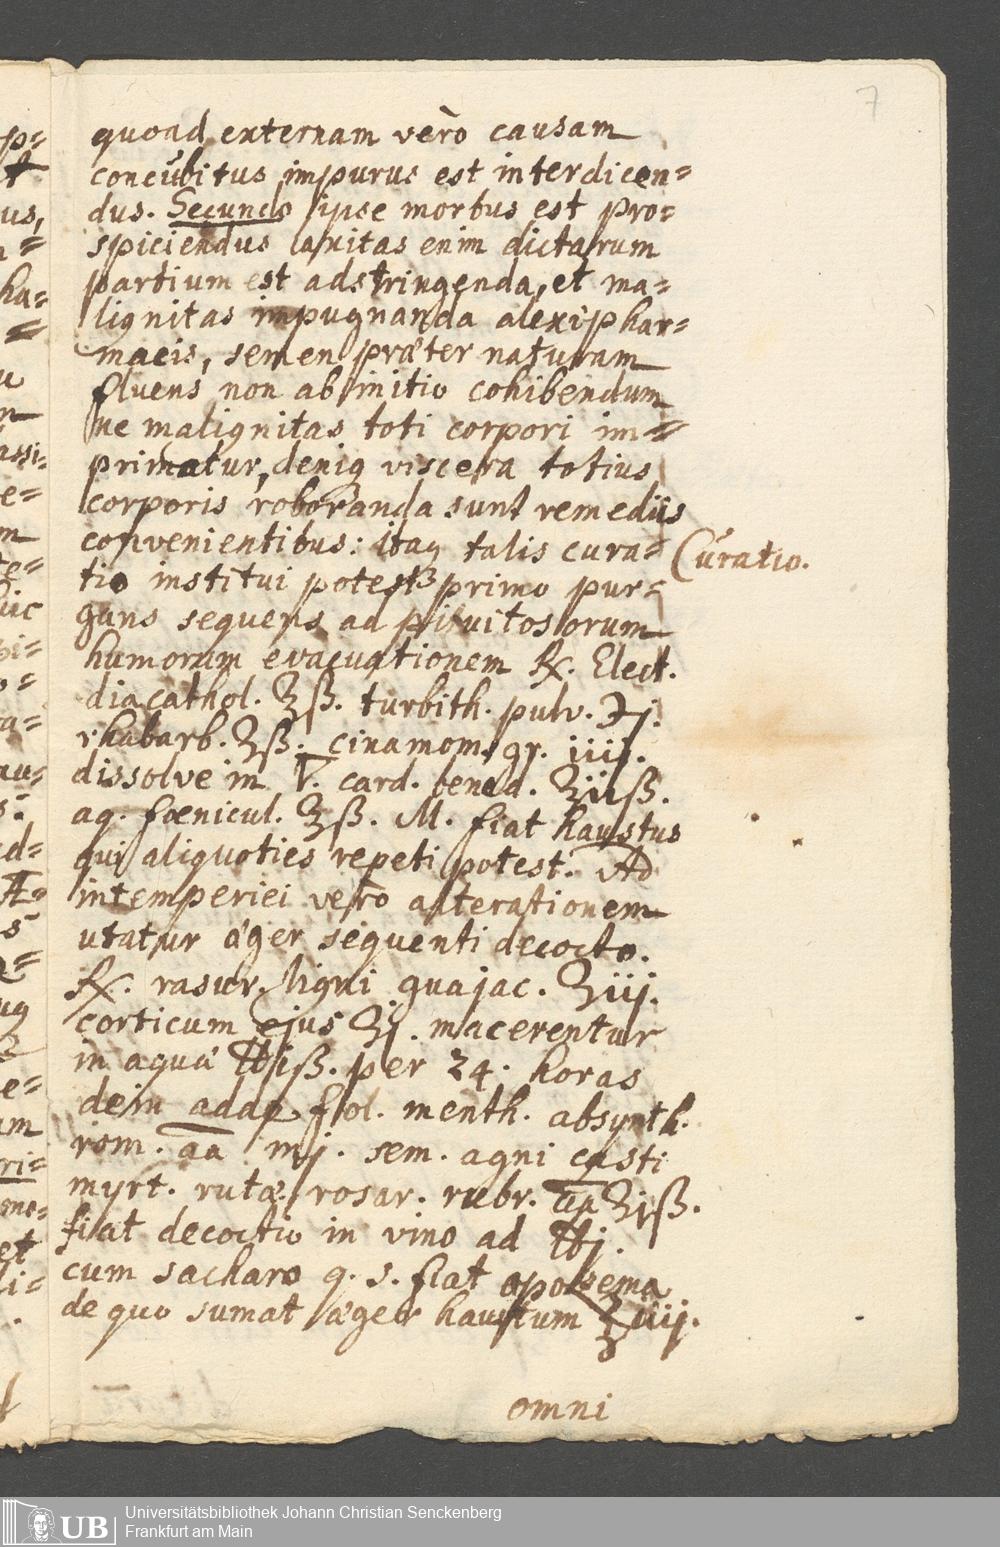 7
quoad externam verò causam
concubitus impurus est interdicen=
dus. Secundo ipse morbus est pro=
spiciendus laxitas enim dictarum
partium est adstringenda, et ma=
lignitas impugnanda alexiphar=
macis, semen præter naturam
fluens non ab initio cohibendum
ne malignitas toti corpori im=
primatur, deniq viscera totius
corporis roboranda sunt remediis
convenientibus: itaq talis cura=
Curatio.
tio institui potest primo pur=
gans sequens ad pituitosorum
humorum evacuationem ℞. Elect.
diacathol. ʒß. turbith. pulv. ℈j.
rhabarb. ʒß. cinamom. gr. iiij.
dissolve in card. bened. ʒiiß.
aq. fœnicul. ʒß. M. fiat haustus
qui aliquoties repeti potest. Ad
intemperiei vero alterationem
utatur æger sequenti decocto.
℞. rasur. ligni guajac. ʒiij.
corticum ejus ʒj. macerentur
in aquâ ℔jß. per 24. horas
dein adde fol. menth. absynth.
rom. aa mj. sem. agni casti
myrt. rutæ, rosar. rubr. aa ʒjß.
fiat decoctio in vino ad ℔j.
cum sacharo q. s. fiat apozema
de quo sumat æger haustum ʒiiij.
omni
UB
Universitätsbibliothek Johann Christian Senckenberg
Frankfurt am Main